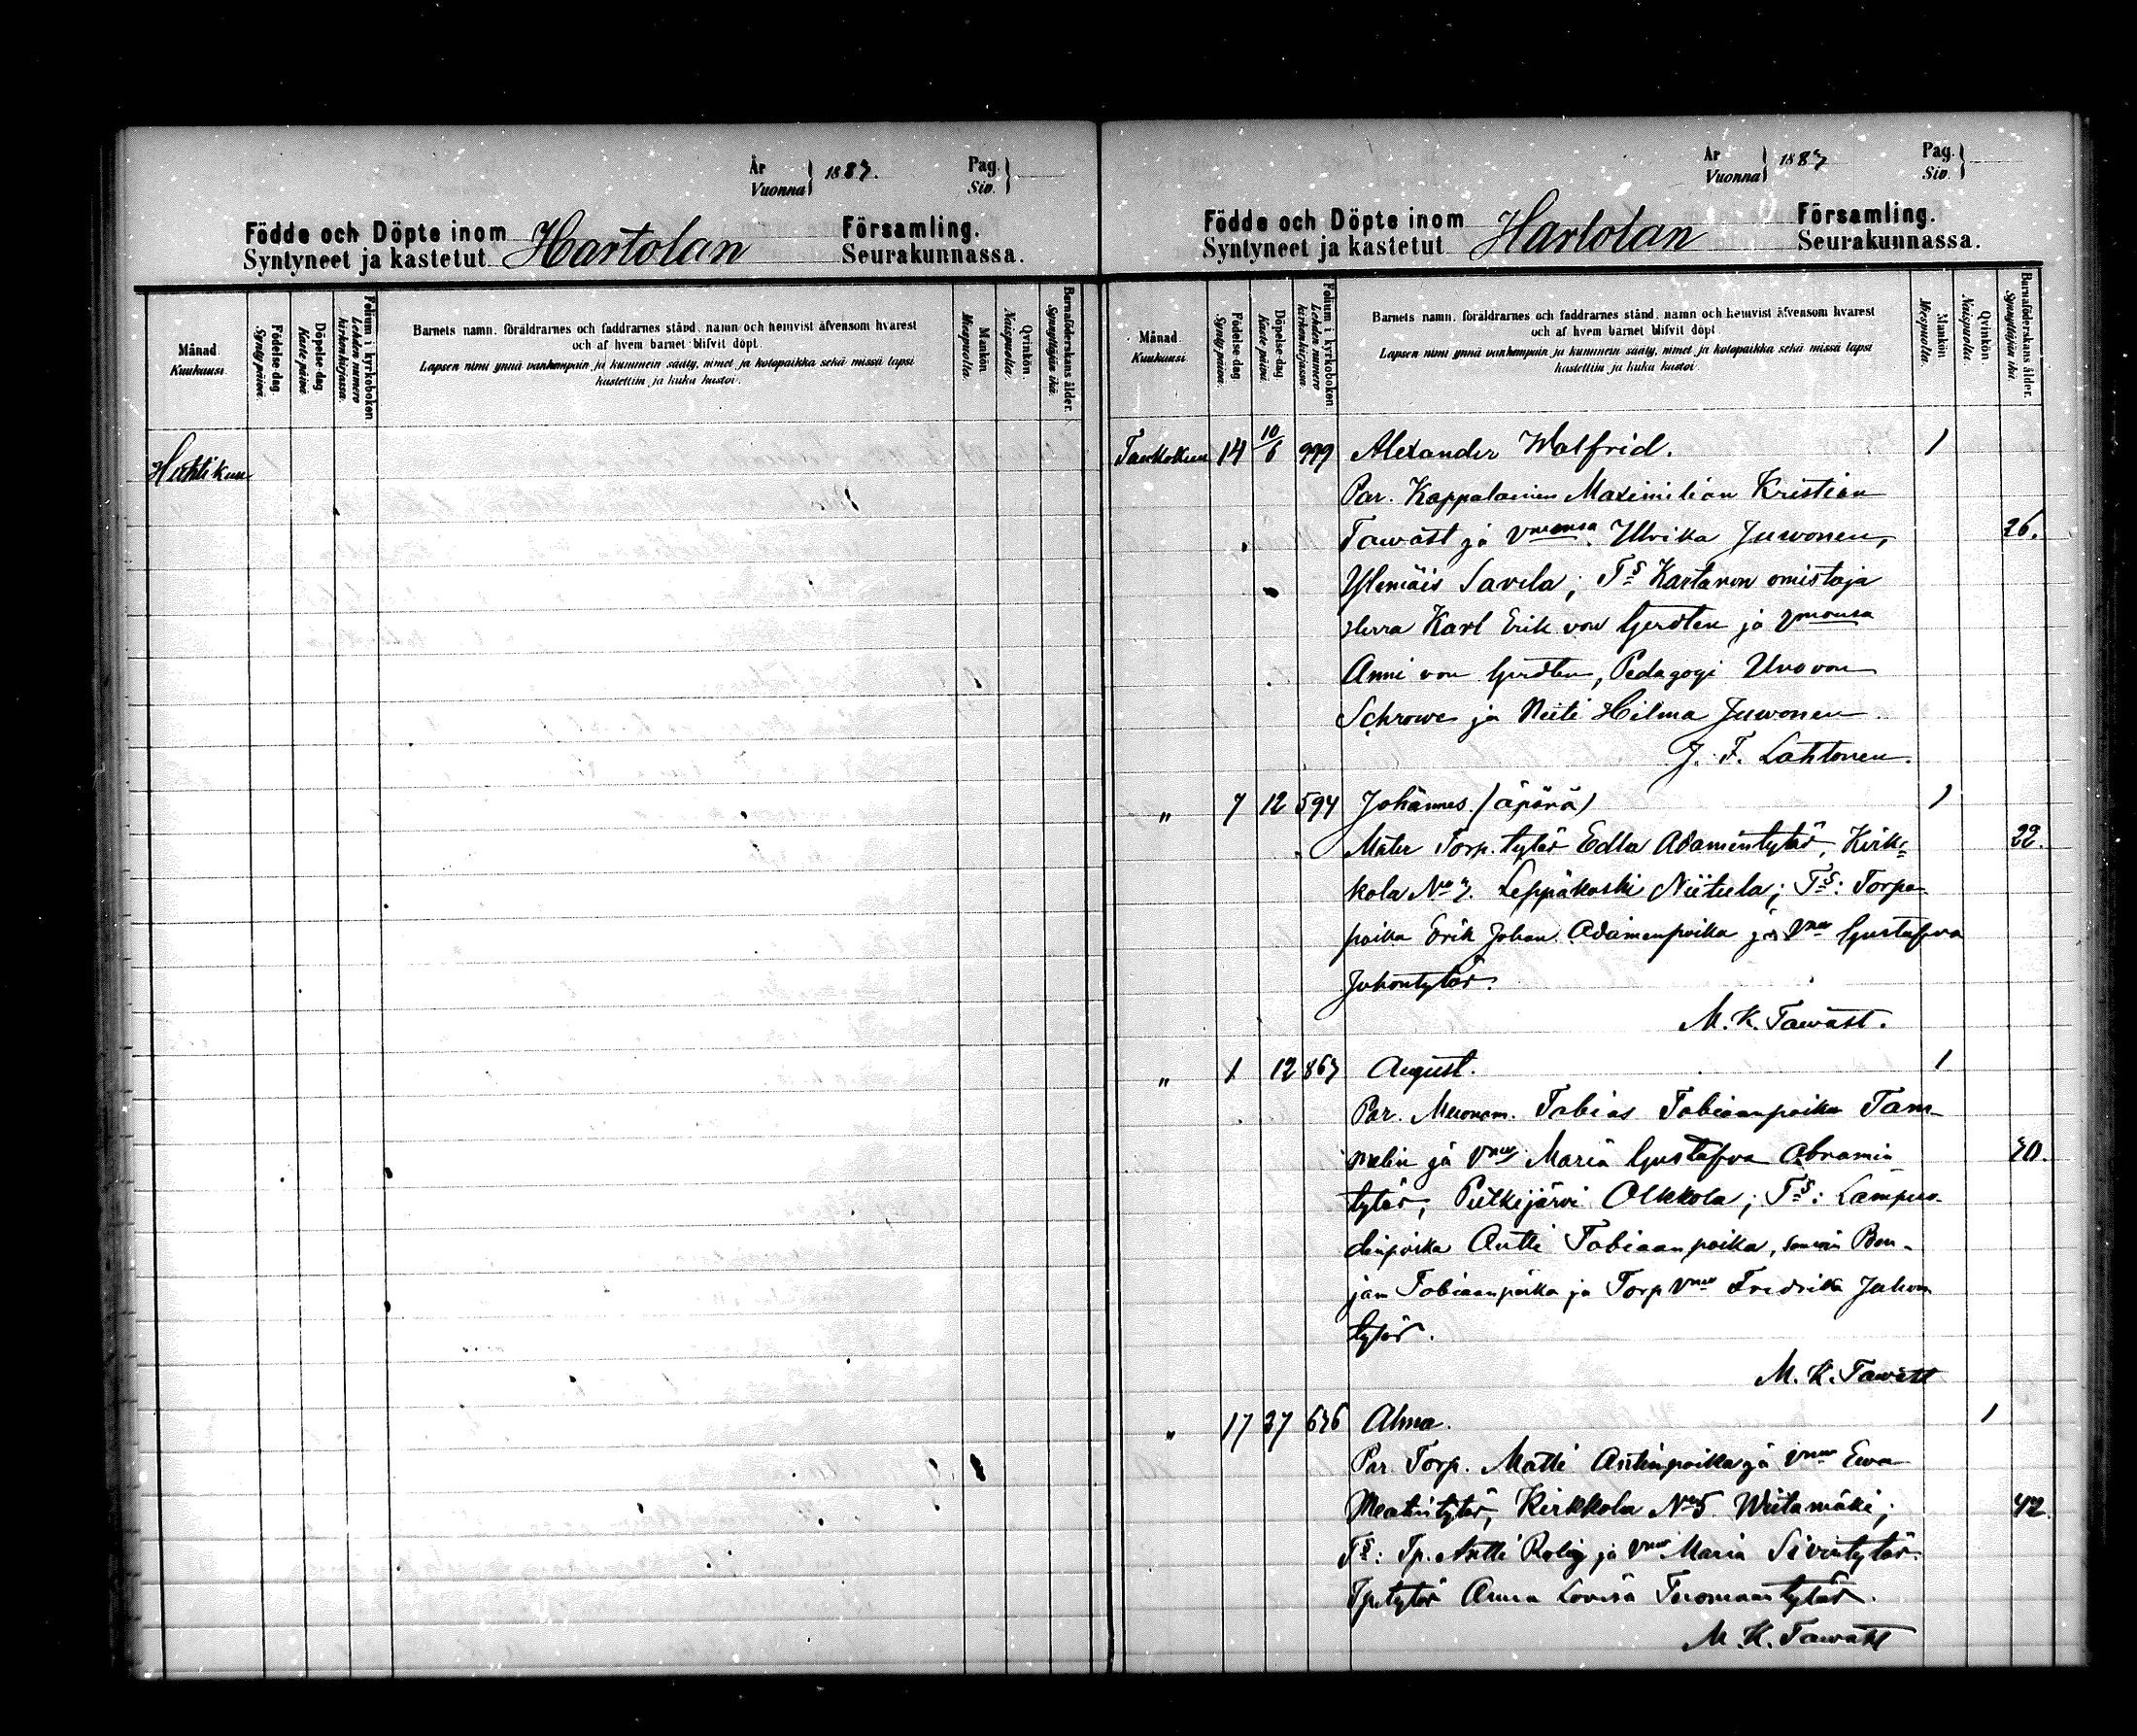 År
Vuonna } 1887. Pag.
Siv. }
Födde och Döpte inom Hartolan Församling.
Syntyneet ja kastetut Seurakunnassa.
Månad.
Kuukausi.
Födelse dag.
Synty päivä.
Döpelse dag.
Kaste päivä.
Folium i kyrkoboken
Lehden numero
kirkonkirjassa.
Barnets namn, föräldrarnes och faddrarnes stånd, namn och hemvist äfvensom hvarest
och af hvem barnet blifvit döpt.
Lapsen nimi ynnä vanhempain ja kummein sääty, nimet ja kotopaikka sekä missä lapsi
kastettiin ja kuka kastoi.
Mankön.
Miespuolia.
Qvinkön.
Naispuolia.
Barnaföderskans ålder.
Synnyttäjän ikä.
Huhtikuu
År
Vuonna } 1887 Pag.
Siv. }
Födde och Döpte inom Hartolan Församling.
Syntyneet ja kastetut Seurakunnassa.
Månad.
Kuukausi.
Födelse dag
Synty päivä.
Döpelse dag
Kaste päivä.
Folium i kyrkoboken
Lehden numero
kirkonkirjassa.
Barnets namn, föräldrarnes och faddrarnes stånd, namn och hemvist äfvensom hvarest
och af hvem barnet blifvit döpt.
Lapsen nimi ynnä vanhempain ja kummein sääty, nimet ja kotopaikka sekä missä lapsi
kastettiin ja kuka kastoi.
Mankön.
Miespuolia.
Qvinkön.
Naispuolia.
Barnaföderskans ålder.
Synnyttäjän ikä.
Toukokuu 14 10/6 999 Alexander Walfrid. 1
Par. Kappalainen Maximilian Kristian
Tawast ja Vmonsa Ulrika Juwonen, 26.
Ylemäis Savela; T§ Kartanon omistaja
Herra Karl Erik von Gerdten ja Vmonsa
Anni von Gerdten, Pedagogi Uno von
Schrowe ja Neiti Hilma Juwonen
J. F. Lahtonen.
" 7 12 594 Johannes (äpärä) 1
Mater Torp. tytär Edla Adamintytär, Kirk- 22.
kola No 7. Leppäkoski Niitula; T§: Torpa
poika Erik Johan Adaminpoika ja Vmo Gustafva
Juhontytär.
M. K. Tawast.
" 1 12 867 August. 1
Par. Muonam. Tobias Tobiaanpoika Tam-
melin ja Vmo Maria Gustafva Abramin 40.
tytär, Putkijärvi Olkkola; T§: Lampuo-
dinpoika Antti Tobiaanpoika, Ben-
jam Tobiaanpoika ja Torp Vmo Fredrika Juhon
tytär.
M. K. Tawast
" 17 27 676 Alma. 1
Par. Torp. Matti Antinpoika ja Vmo Ewa
Matintytär, Kirkkola No 5 Wiitamäki; 42
T§: Tp. Antti Rolig ja Vmo Maria Sivintytär.
Tp tytär Anna Lovisa Tuomaantytär.
M. K. Tawast